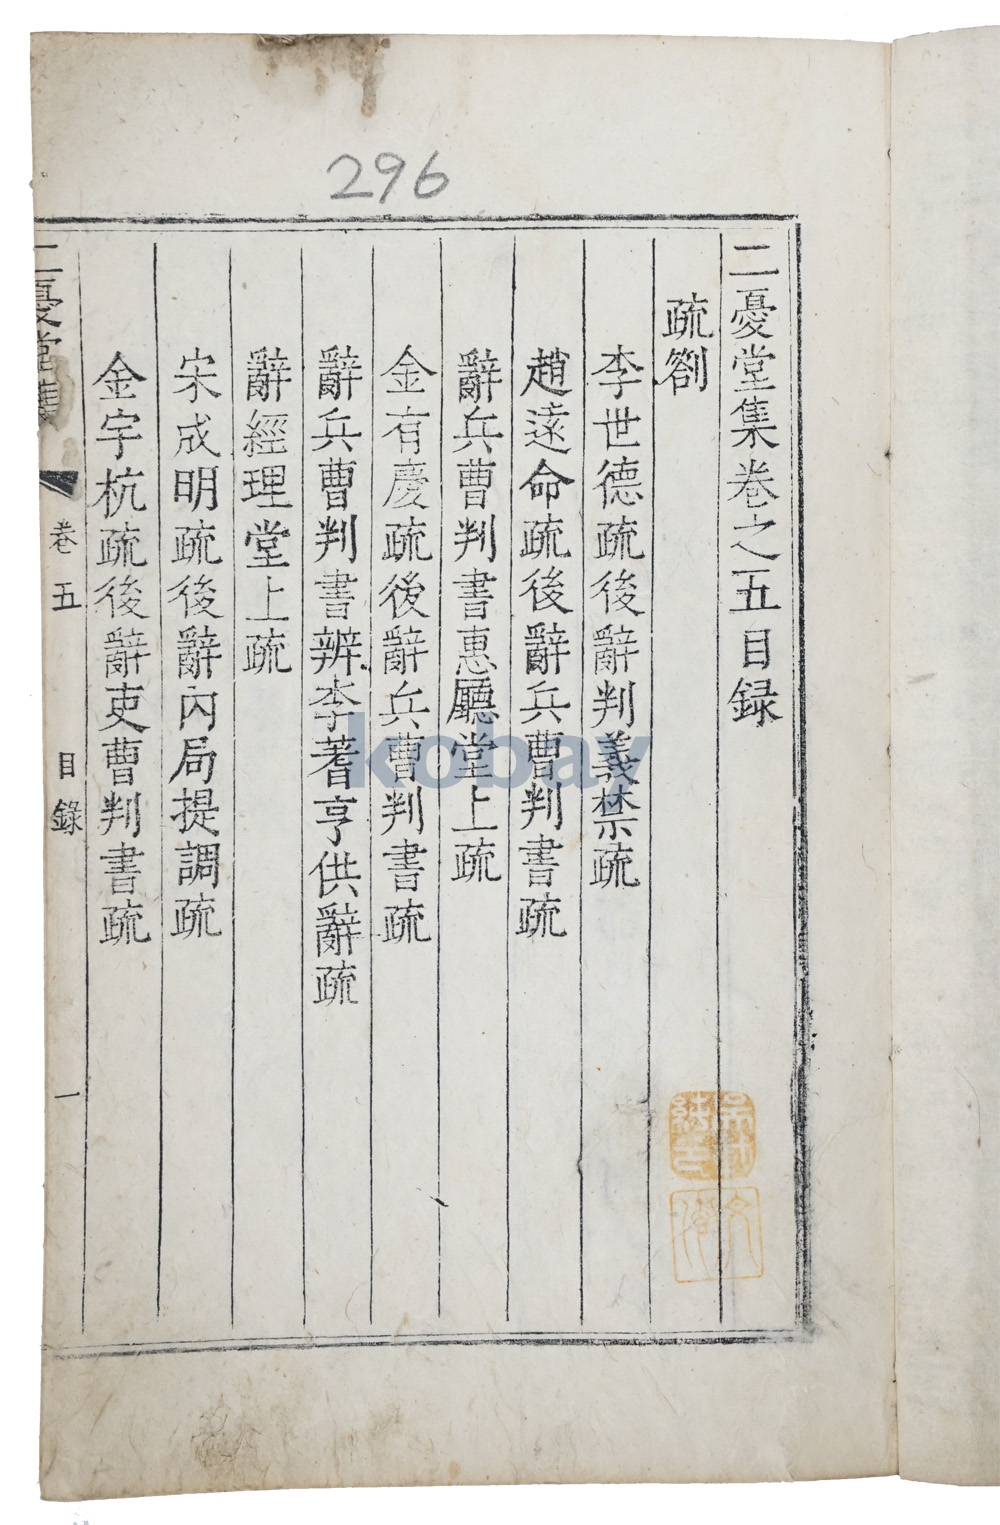 296
二憂堂集卷之五目録
疏劄
李世德疏後辭判義禁疏
趙遠命疏後辭兵曹判書疏
辭兵曹判書惠廳堂上疏
金有慶疏後辭兵曹判書疏
辭兵曹判書辨李蓍亨供辭疏
辭經理堂上疏
宋成明疏後辭內局提調疏
金宇杭疏後辭吏曹判書疏
二憂堂集 卷五 目錄 一
kobay